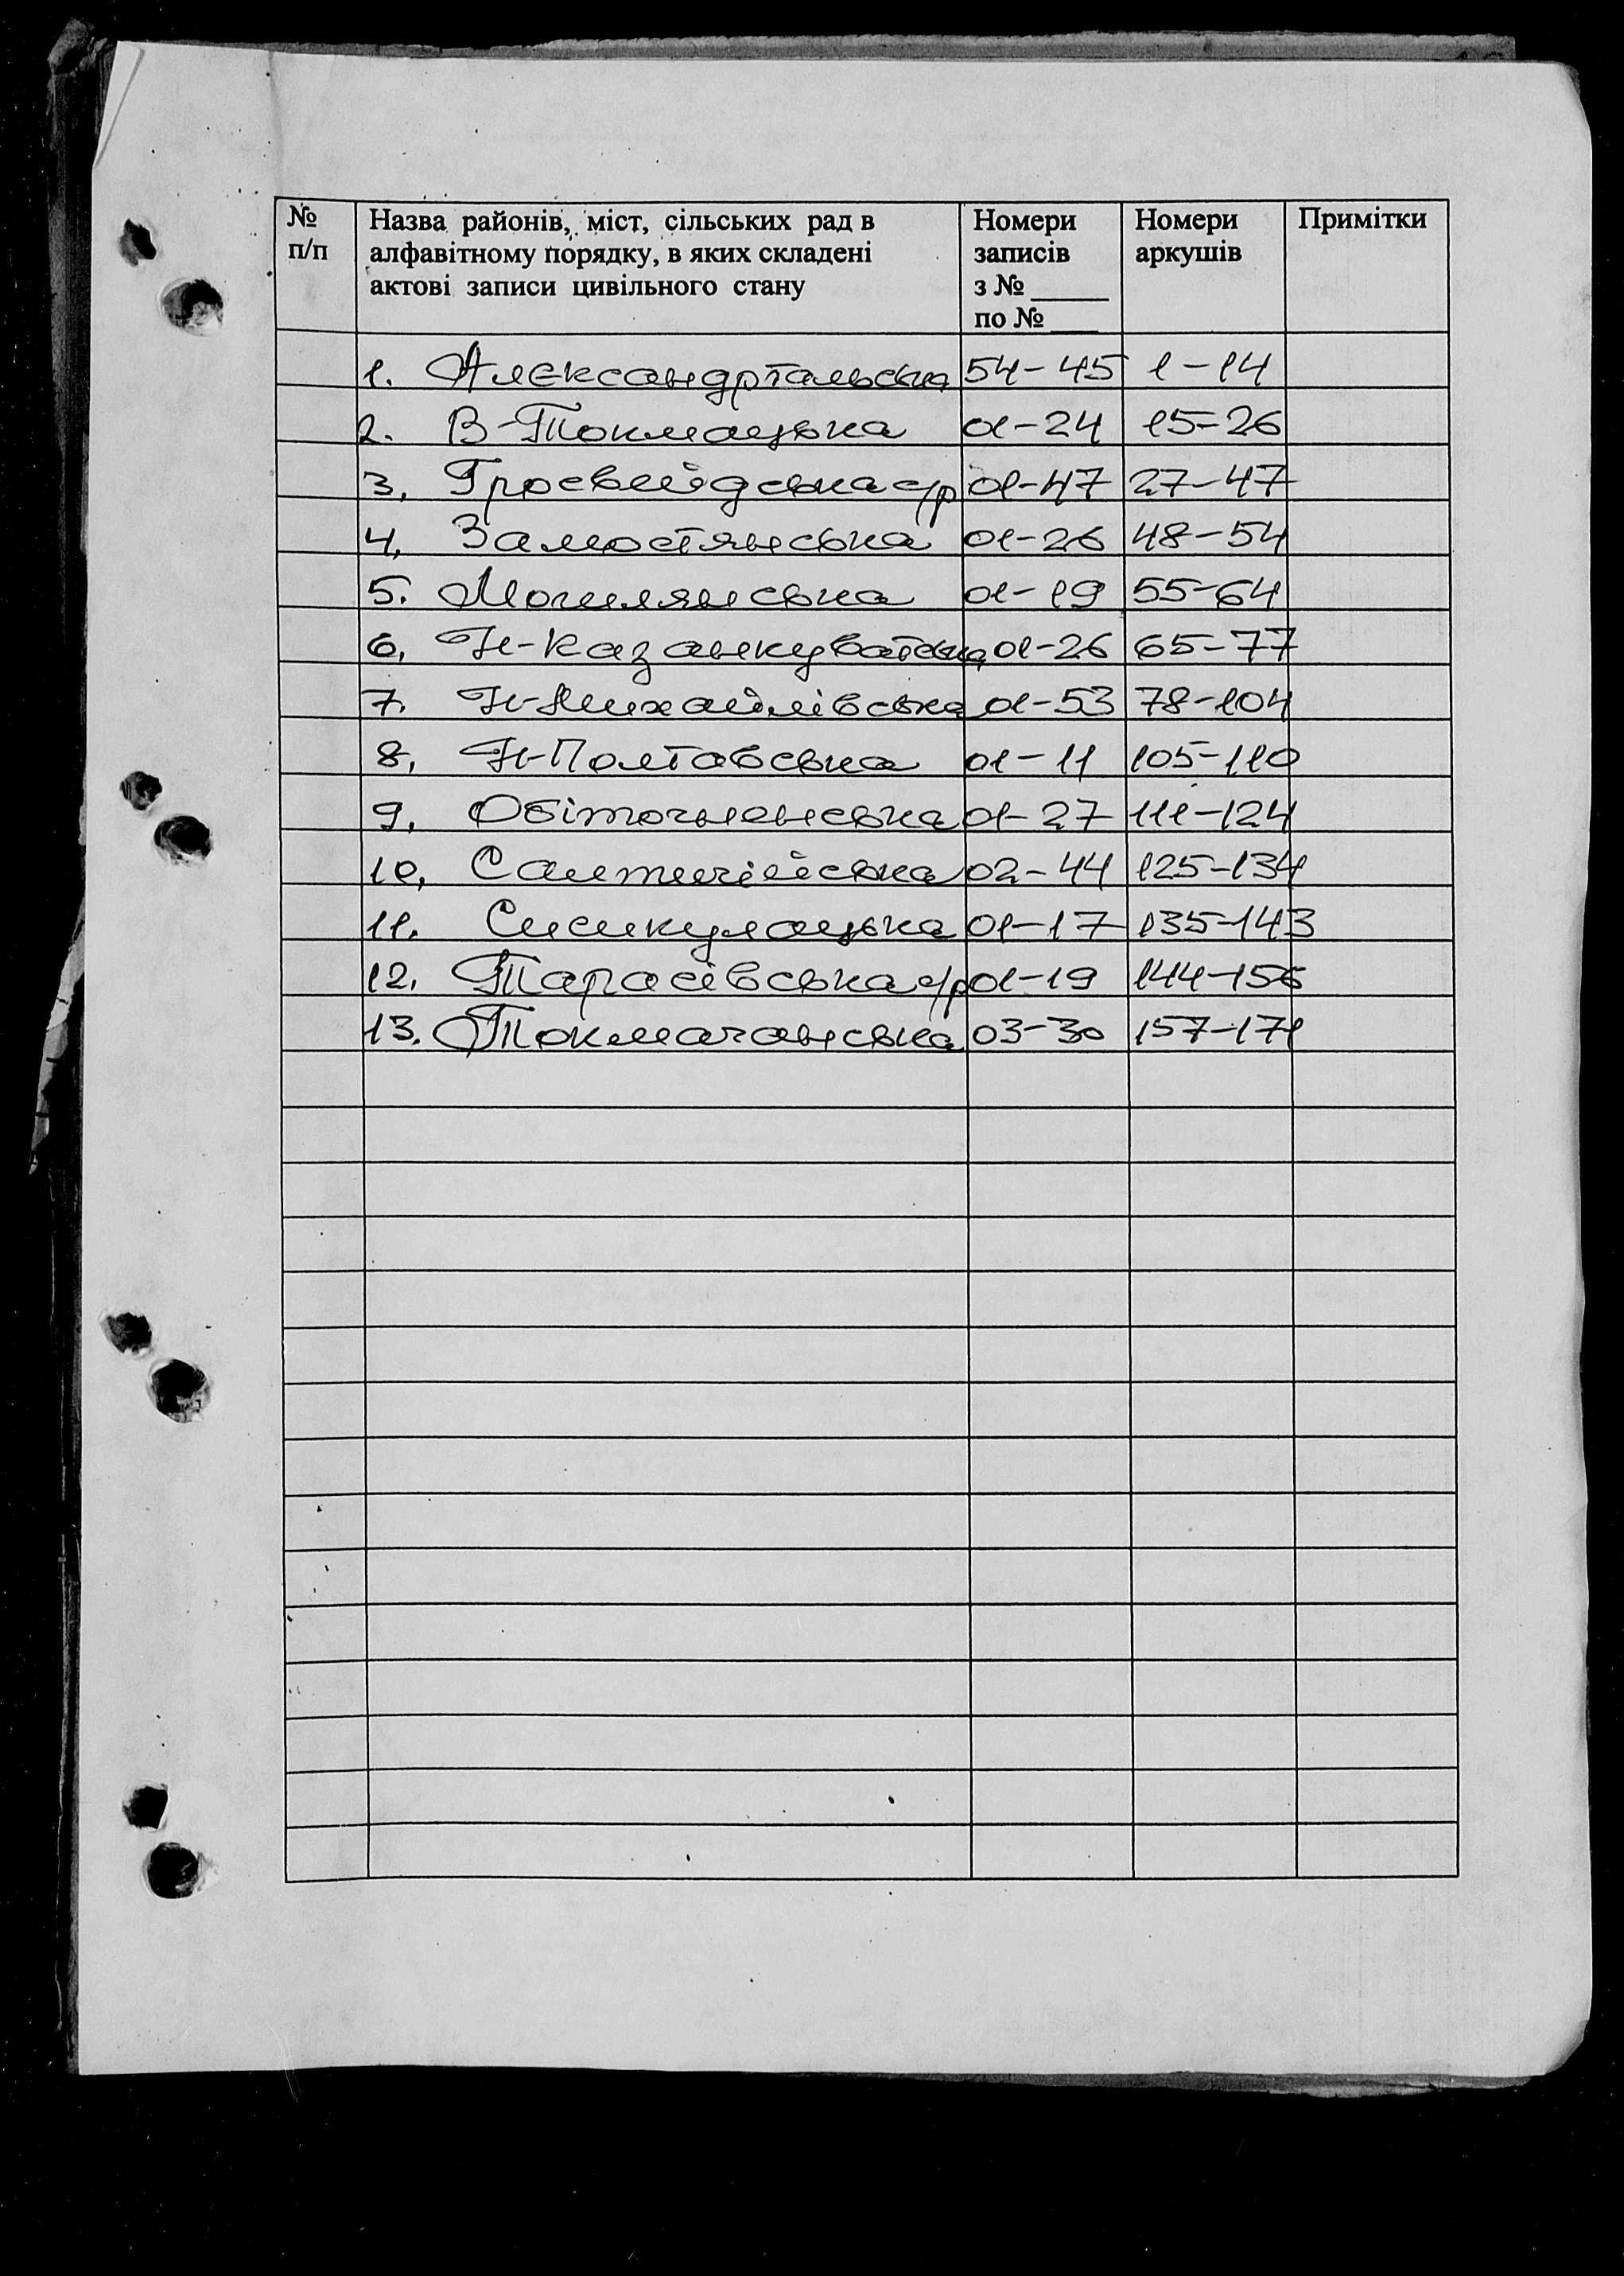 № п/п Назва районів, міст, сільських рад в алфавітному порядку, в яких складені актові записи цивільного стану Номери записів з № _____ по № ___ Номери аркушів Примітки
1. Александртальська 54-45 1-14
2. В-Токмацька 01-24 15-26
3. Гросвейдська с/р 01-47 27-47
4. Замостянська 01-26 48-54
5. Могилянська 01-19 55-64
6. Н-Казанкуватська 01-26 65-77
7. Н-Михайлівська 01-53 78-104
8. Н-Полтавська 01-11 105-110
9. Обіточненська 01-27 111-124
10. Салтичійська 02-44 125-134
11. Сисикулацька 01-17 135-143
12. Тарасівська с/р 01-19 144-156
13. Токмачанська 03-30 157-171